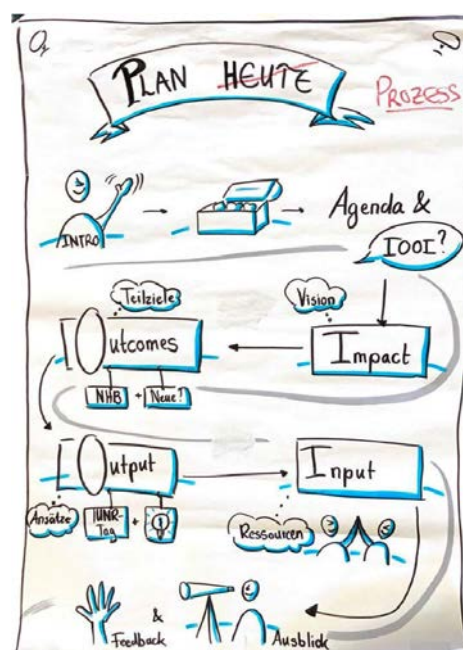 PLAN HEUTE
PROZESS
INTRO
Agenda &
IOOI?
Teilziele
Vision
Outcomes
Impact
NHB + Neue?
Output
Input
Ansätze
IUNR-
Tag
+
Ressourcen
&
Feedback
Ausblick